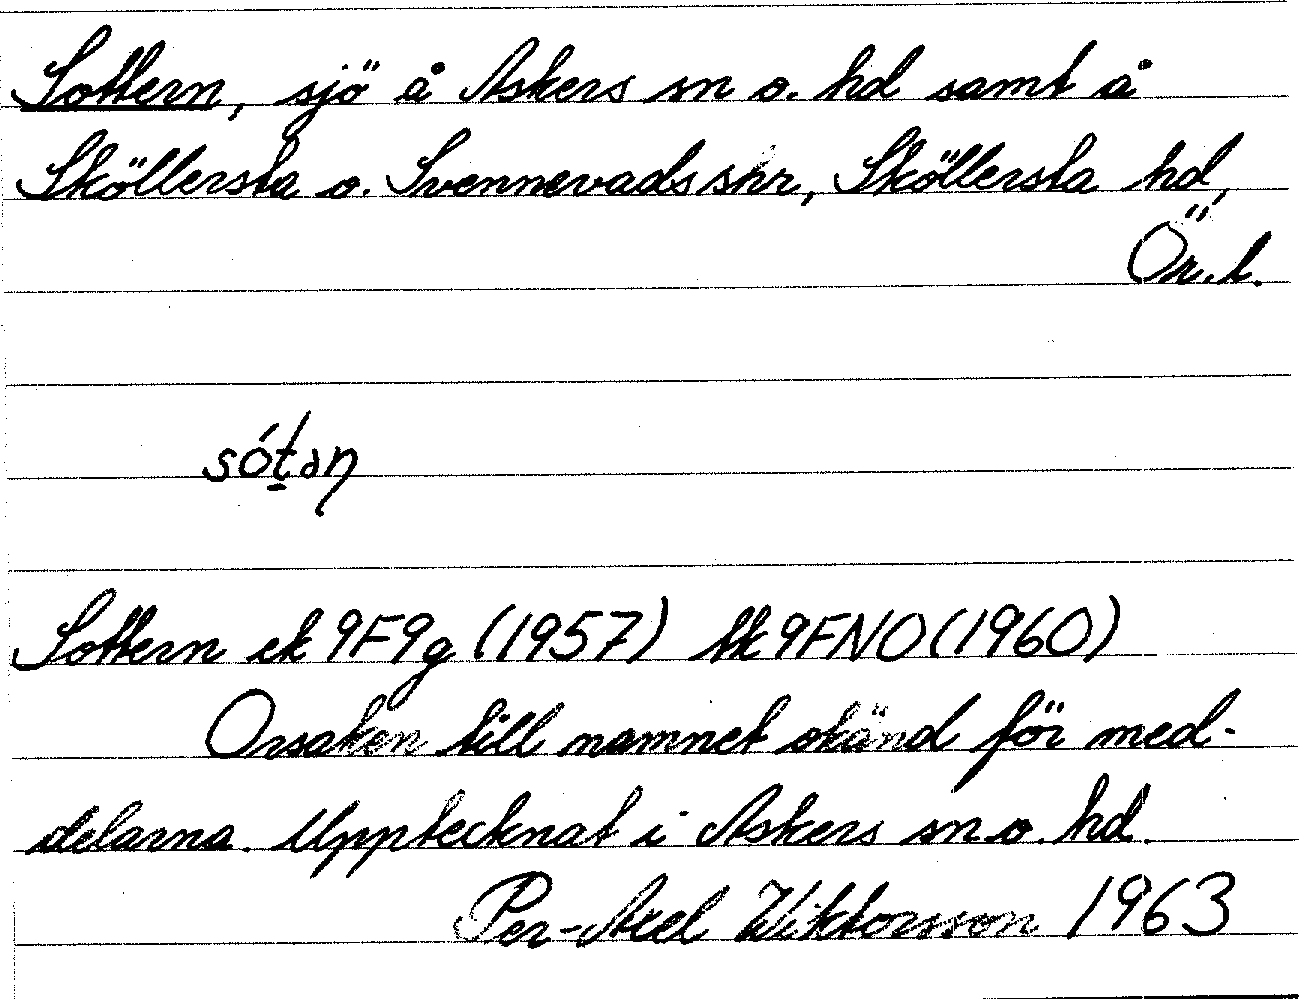 Sottern, sjö å Askers sn o. hd samt å
Sköllersta o. Svennevads snr, Sköllersta hd,
Ör. l.
sót̠ən
Sottern ek 9F9g (1957) tk 9FNO (1960)
Orsaken till namnet okänd för med-
delarna. Upptecknat i Askers sn o. hd.
Per-Axel Wiktorsson 1963